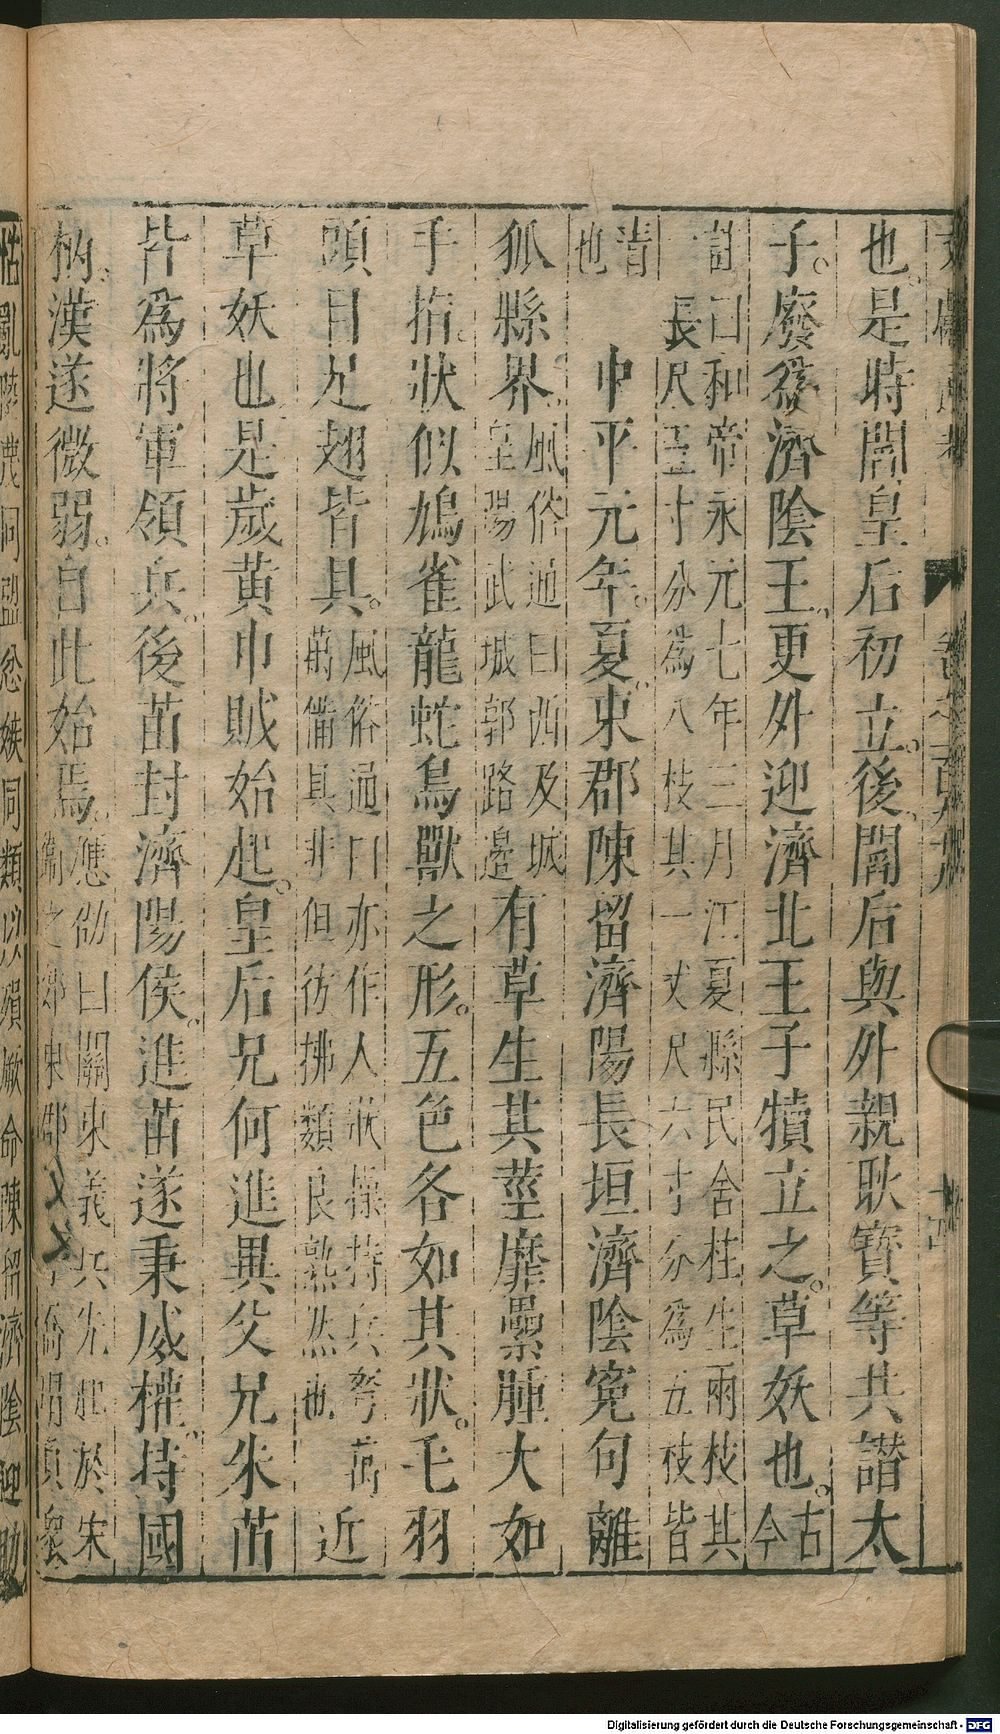 也。是時閻皇后初立。後閻后與外親耿寶等共譖太
子。廢爲濟陰王。更外迎濟北王子犢立之。草妖也。古今
註曰和帝永元七年三月江夏縣民舍柱生兩枝其
一長尺五寸分爲八枝其一丈尺六寸分爲五枝皆
靑也
中平元年。夏。東郡陳留濟陽長垣濟陰寃句離
狐縣界。風俗通曰西及城
皇陽武城郭路邊
有草生其莖靡纍腫大如
手指。狀似鳩雀龍蛇鳥獸之形。五色各如其狀。毛羽
頭目足翅皆具。風俗通曰亦作人狀操持兵弩萬
萬備具非但彷拂類良熟然也
近
草妖也是歲黃巾賊始起。皇后兄何進異父兄朱苗
皆爲將軍領兵。後苗封濟陽侯。進苗遂秉威權。持國
柄。漢遂微弱。自此始焉。應劭曰關東義兵先起於宋
衞之郊東郡
負衆
怙亂陵蔑同盟忿嫉同類以殞厥命陳留濟陰迎助
Digitalisierung gefördert durch die Deutsche Forschungsgemeinschaft - DFG